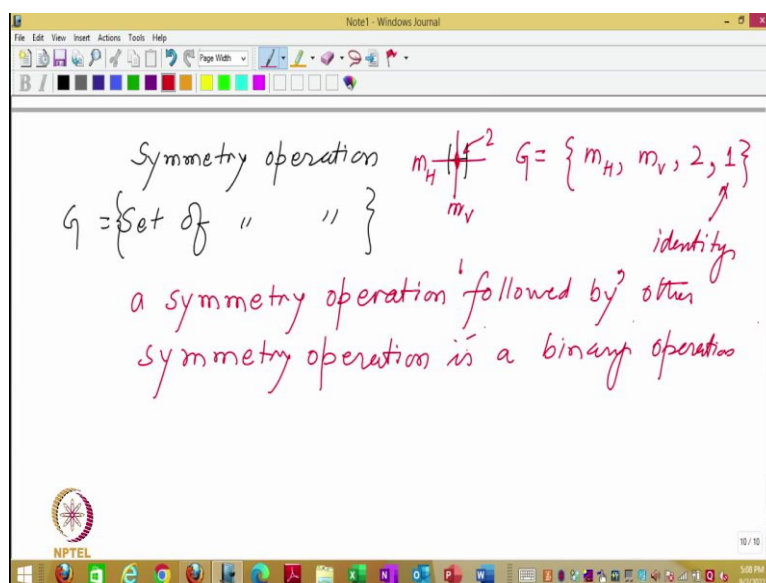 Note1 - Windows Journal
File Edit View Insert Actions Tools Help
Page Width
B I
Symmetry operation m_H H 2 G = { m_H, m_V, 2, 1 }
m_V
G = { Set of " " }
identity
a symmetry operation 'followed by' other
symmetry operation is a binary operation
NPTEL
10 / 10
5:08 PM